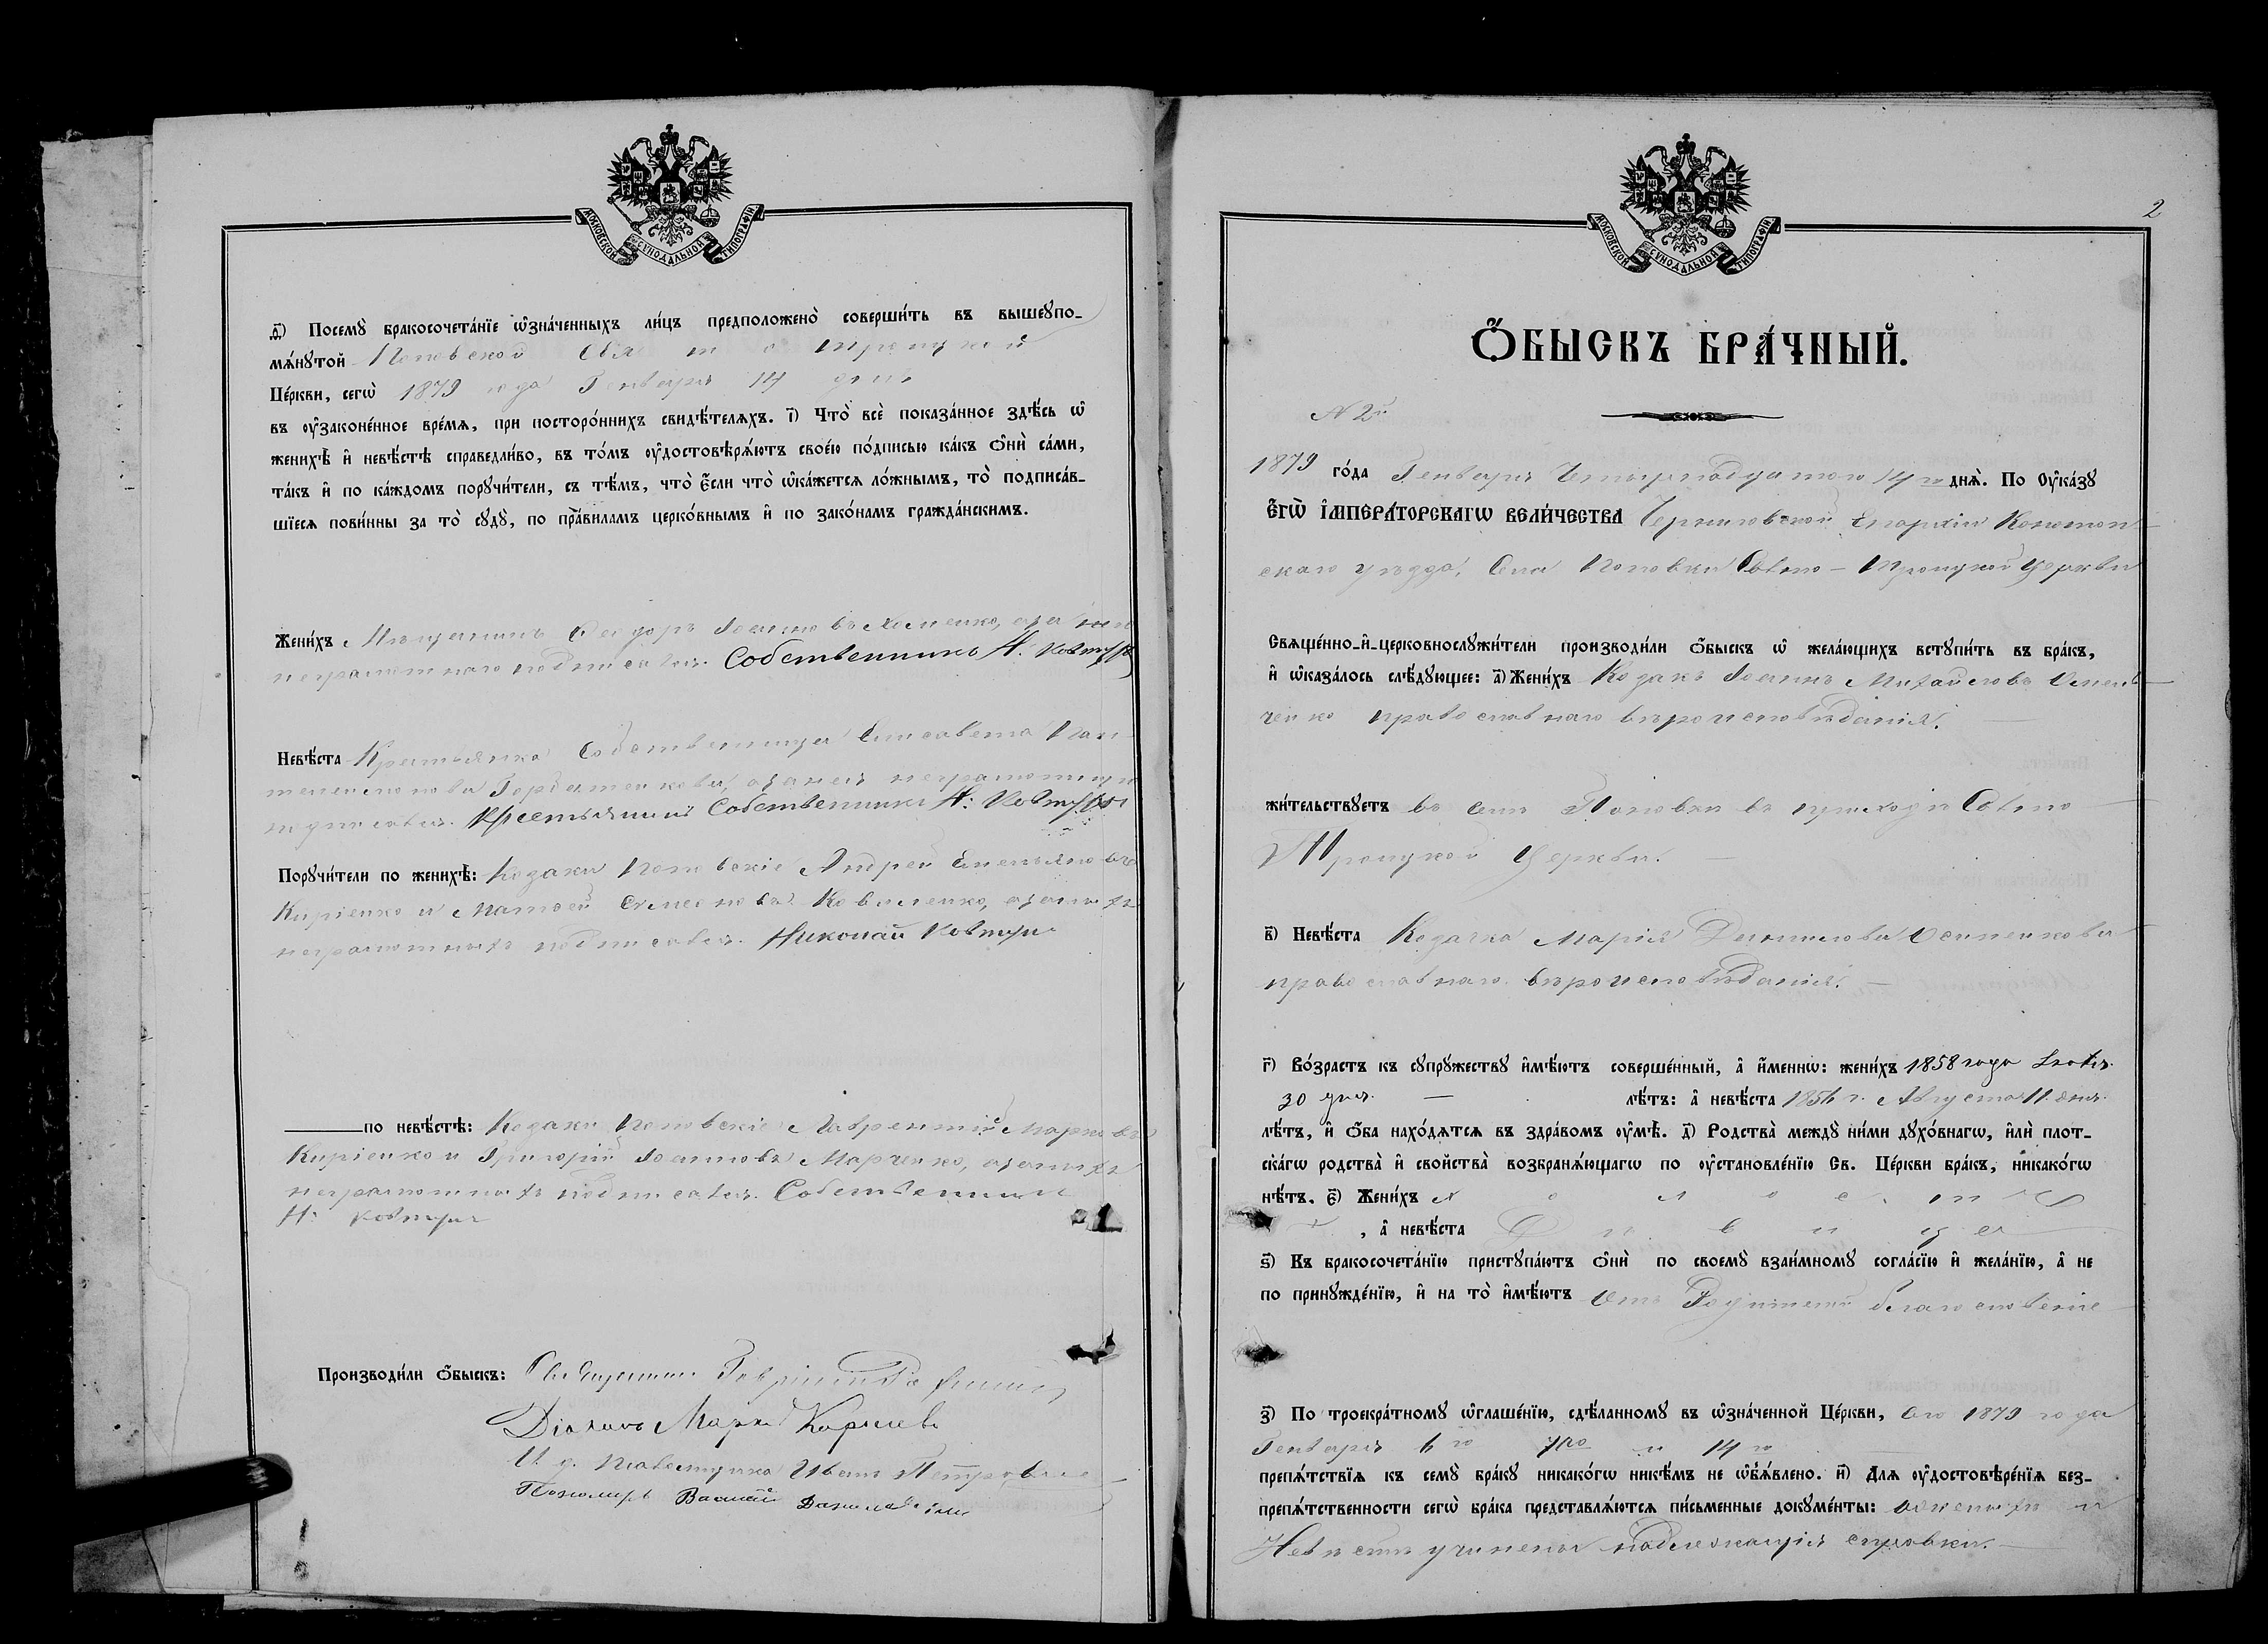 МОСКОВСКОЙ СѴНОДАЛЬНОЙ ТИПОГРАФІИ
ѳ҃) Посемꙋ̀ бракосочета́нїе ѡ҆зна́ченныхъ ли́цъ предположено̀ соверши́ть въ вышеꙋпо-
мѧ́нꙋтой Поповской Свято Троицкой
Це́ркви, сегѡ̀ 1879 года Генваря 14 дня
въ ᲂу҆законе́нное вре́мѧ, при посторо́ннихъ свидѣ́телѧхъ. і҃) Что̀ всѐ показа́нное здѣ́сь ѡ҆
женихѣ̀ и҆ невѣ́стѣ справедли́во, въ то́мъ ᲂу҆достовѣрѧ́ютъ свое́ю по́дписью ка́къ ѻ҆нѝ са́ми,
та́къ и҆ по ка́ждомъ порꙋчи́тели, съ тѣ́мъ, что̀ є҆́сли что̀ ѡ҆ка́жетсѧ ло́жнымъ, то̀ подписа́в-
шїесѧ пови́нны за то̀ сꙋдꙋ̀, по пра́виламъ церко́внымъ и҆ по зако́намъ гражда́нскимъ.
Жени́хъ Мѣщанинъ Ѳеодоръ Іоанновъ Хоменко, а за него
неграмотнаго подписался Собственникъ Н. Ковтунъ
Невѣ́ста Крестьянка Собственница Елисавета Пан-
телеимонова, а за нея неграмотную
подписался Крестьянинъ Собственникъ Н: Ковтунъ
Порꙋчи́тели по женихѣ̀: Козаки Поповскіе Андрей Емельяновъ
Киріенко и Матвей Симеоновъ Коваленко, а за нихъ
неграмотныхъ подписался Николай Ковтунъ
по невѣ́стѣ: Козаки Поповскіе Лаврентій Марковъ
Киріенко и Григорій Іоанновъ Марченко, а за нихъ
неграмотныхъ подписался Собственникъ
Н: Ковтунъ
Производи́ли ѻ҆́быскъ: Священникъ Гавріилъ
Діаконъ Маркъ
И. д. Псаломщика Иванъ Петровскій
Пономарь Василій Данилевскій
МОСКОВСКОЙ СѴНОДАЛЬНОЙ ТИПОГРАФІИ
2
Ѻ҆́БЫСКЪ БРА́ЧНЫЙ.
N 2й
1879 го́да Генваря Четырнадцатого 14го днѧ̀. По Оу҆ка́зꙋ
Є҆ГѠ̀ І҆МПЕРА́ТОРСКАГѠ ВЕЛИ́ЧЕСТВА Черниговской Епархіи Конотоп-
скаго уѣзда, Села Поповки Свято-Троицкой Церкви
Свѧще́нно-и҆-церковнослꙋжи́тели производи́ли ѻ҆́быскъ ѡ҆ жела́ющихъ встꙋпи́ть въ бра́къ,
и҆ ѡ҆каза́лось слѣ́дꙋющее: а҃) Жени́хъ Козакъ Іоаннъ Михайловъ
православнаго вѣроисповѣданія.
жи́тельствꙋетъ въ селѣ Поповки въ приходѣ Свято
Троицкой Церкви.
в҃) Невѣ́ста Козачка Марія Даниилова Осипенкова
православнаго вѣроисповѣданія.
г҃) Во́зрастъ къ сꙋпрꙋ́жествꙋ и҆мѣ́ютъ соверше́нный, а҆ и҆́меннѡ: жени́хъ 1858 года
30 дня лѣ́тъ: а҆ невѣ́ста 1856 г. Августа 11. дня
лѣ́тъ, и҆ ѻ҆́ба нахо́дѧтсѧ въ здра́вомъ ᲂу҆мѣ̀. д҃) Родства̀ междꙋ̀ ни́ми дꙋхо́внагѡ, и҆лѝ плот-
ска́гѡ родства̀ и҆ свойства̀ возбранѧ́ющагѡ по ᲂу҆становле́нїю Св. Це́ркви бра́къ, никако́гѡ
нѣ́тъ. є҃) Жени́хъ Холостъ
, а҆ невѣ́ста Дѣвица
ѕ҃) Къ бракосочета́нїю пристꙋпа́ютъ ѻ҆нѝ по своемꙋ̀ взаи́мномꙋ согла́сїю и҆ жела́нїю, а҆ не
по принꙋжде́нїю, и҆ на то̀ и҆мѣ́ютъ Отъ Родителей благословеніе
з҃) По троекра́тномꙋ ѡ҆глаше́нїю, сдѣ́ланномꙋ въ ѡ҆зна́ченной Це́ркви, сего 1879 года
Генваря 6го 7го и 14го
препѧ́тствїѧ къ семꙋ̀ бра́кꙋ никако́гѡ никѣ́мъ не ѡ҆б̾ѧ́влено. и҃) Для ᲂу҆достовѣре́нїѧ без-
препѧ́тственности сегѡ̀ бра́ка представлѧ́ютсѧ пи́сьменные докꙋме́нты: о женихѣ и
Невѣстѣ учинены надлежащія справки.